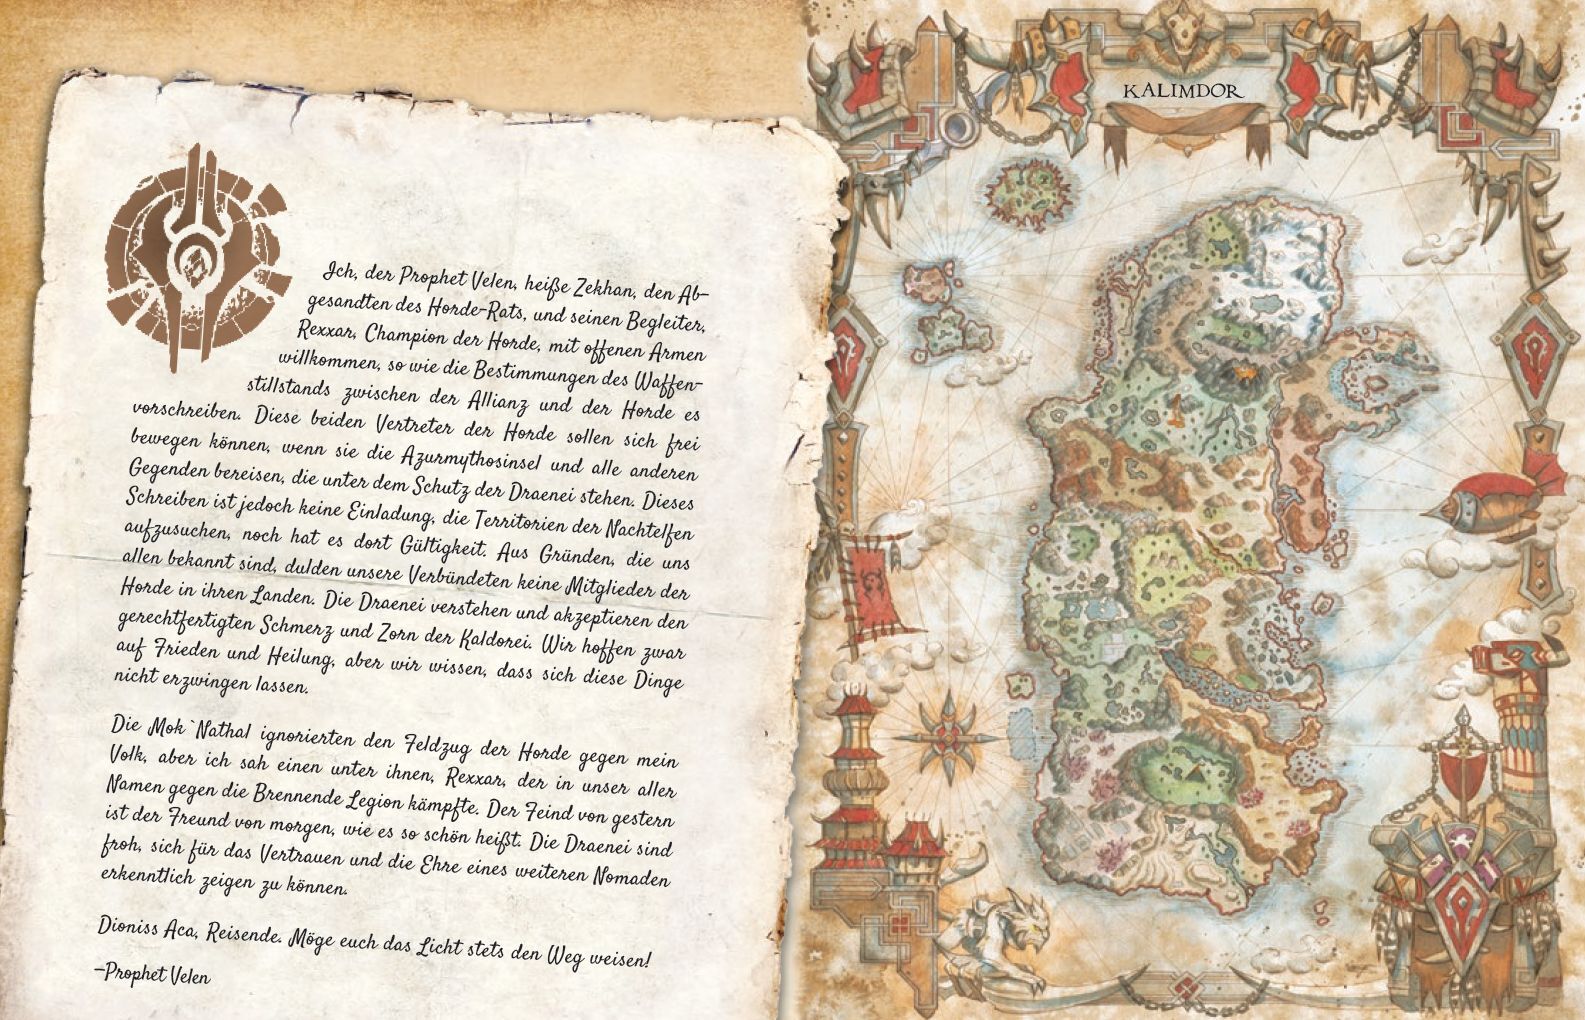 Ich, der Prophet Velen, heiße Zekhan, den Ab-
gesandten des Horde-Rats, und seinen Begleiter,
Rexxar, Champion der Horde, mit offenen Armen
willkommen, so wie die Bestimmungen des Waffen-
stillstands zwischen der Allianz und der Horde es
vorschreiben. Diese beiden Vertreter der Horde sollen sich frei
bewegen können, wenn sie die Azurmythosinsel und alle anderen
Gegenden bereisen, die unter dem Schutz der Draenei stehen. Dieses
Schreiben ist jedoch keine Einladung, die Territorien der Nachtelfen
aufzusuchen, noch hat es dort Gültigkeit. Aus Gründen, die uns
allen bekannt sind, dulden unsere Verbündeten keine Mitglieder der
Horde in ihren Landen. Die Draenei verstehen und akzeptieren den
gerechtfertigten Schmerz und Zorn der Kaldorei. Wir hoffen zwar
auf Frieden und Heilung, aber wir wissen, dass sich diese Dinge
nicht erzwingen lassen.
Die Mok`Nathal ignorierten den Feldzug der Horde gegen mein
Volk, aber ich sah einen unter ihnen, Rexxar, der in unser aller
Namen gegen die Brennende Legion kämpfte. Der Feind von gestern
ist der Freund von morgen, wie es so schön heißt. Die Draenei sind
froh, sich für das Vertrauen und die Ehre eines weiteren Nomaden
erkenntlich zeigen zu können.
Dioniss Aca, Reisende. Möge euch das Licht stets den Weg weisen!
–Prophet Velen
KALIMDOR